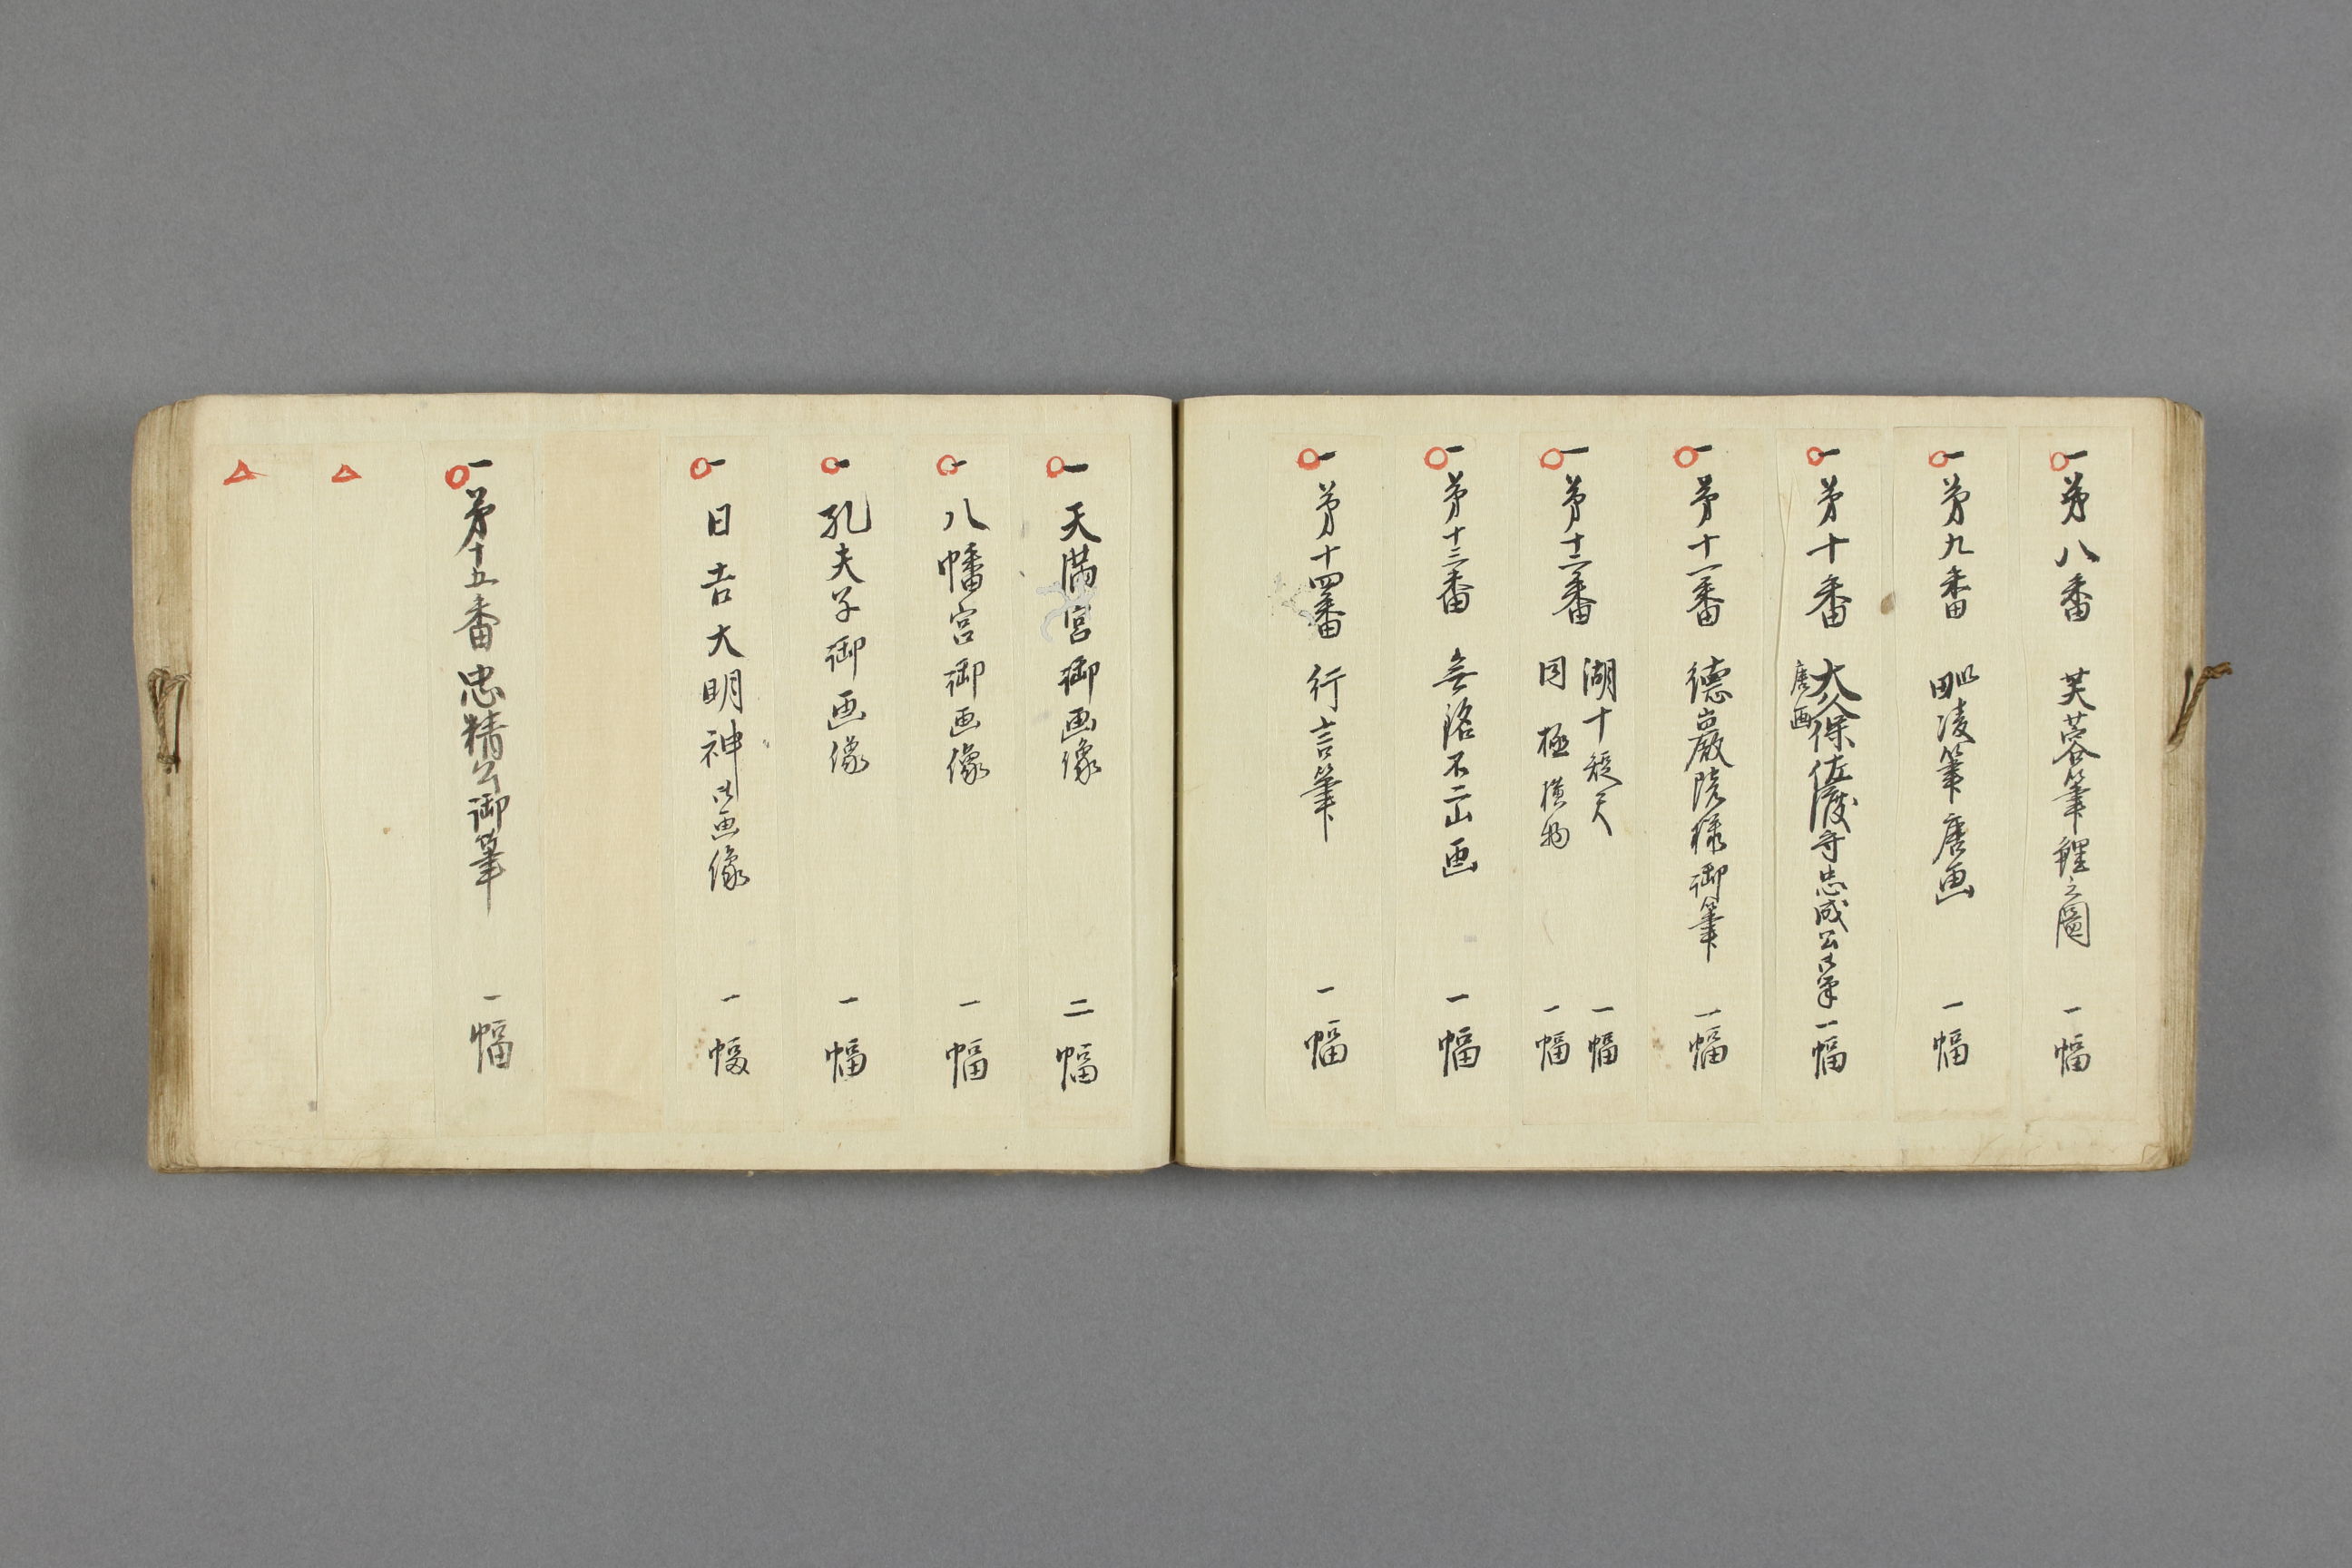 一第八番 芙蓉筆鯉之圖 一幅
一第九番 毗凌筆唐画 一幅
一第十番 大久保佐渡守忠成公御筆 一幅
唐画
一第十一番 德巖院様御筆 一幅
一第十二番 湖十 一幅
同 極横物 一幅
一第十三番 無洛不二山画 一幅
一第十四番 行言筆 一幅
一天満宮御画像 二幅
一八幡宮御画像 一幅
一孔夫子御画像 一幅
一日吉大明神御画像 一幅
一第十五番忠精公御筆 一幅